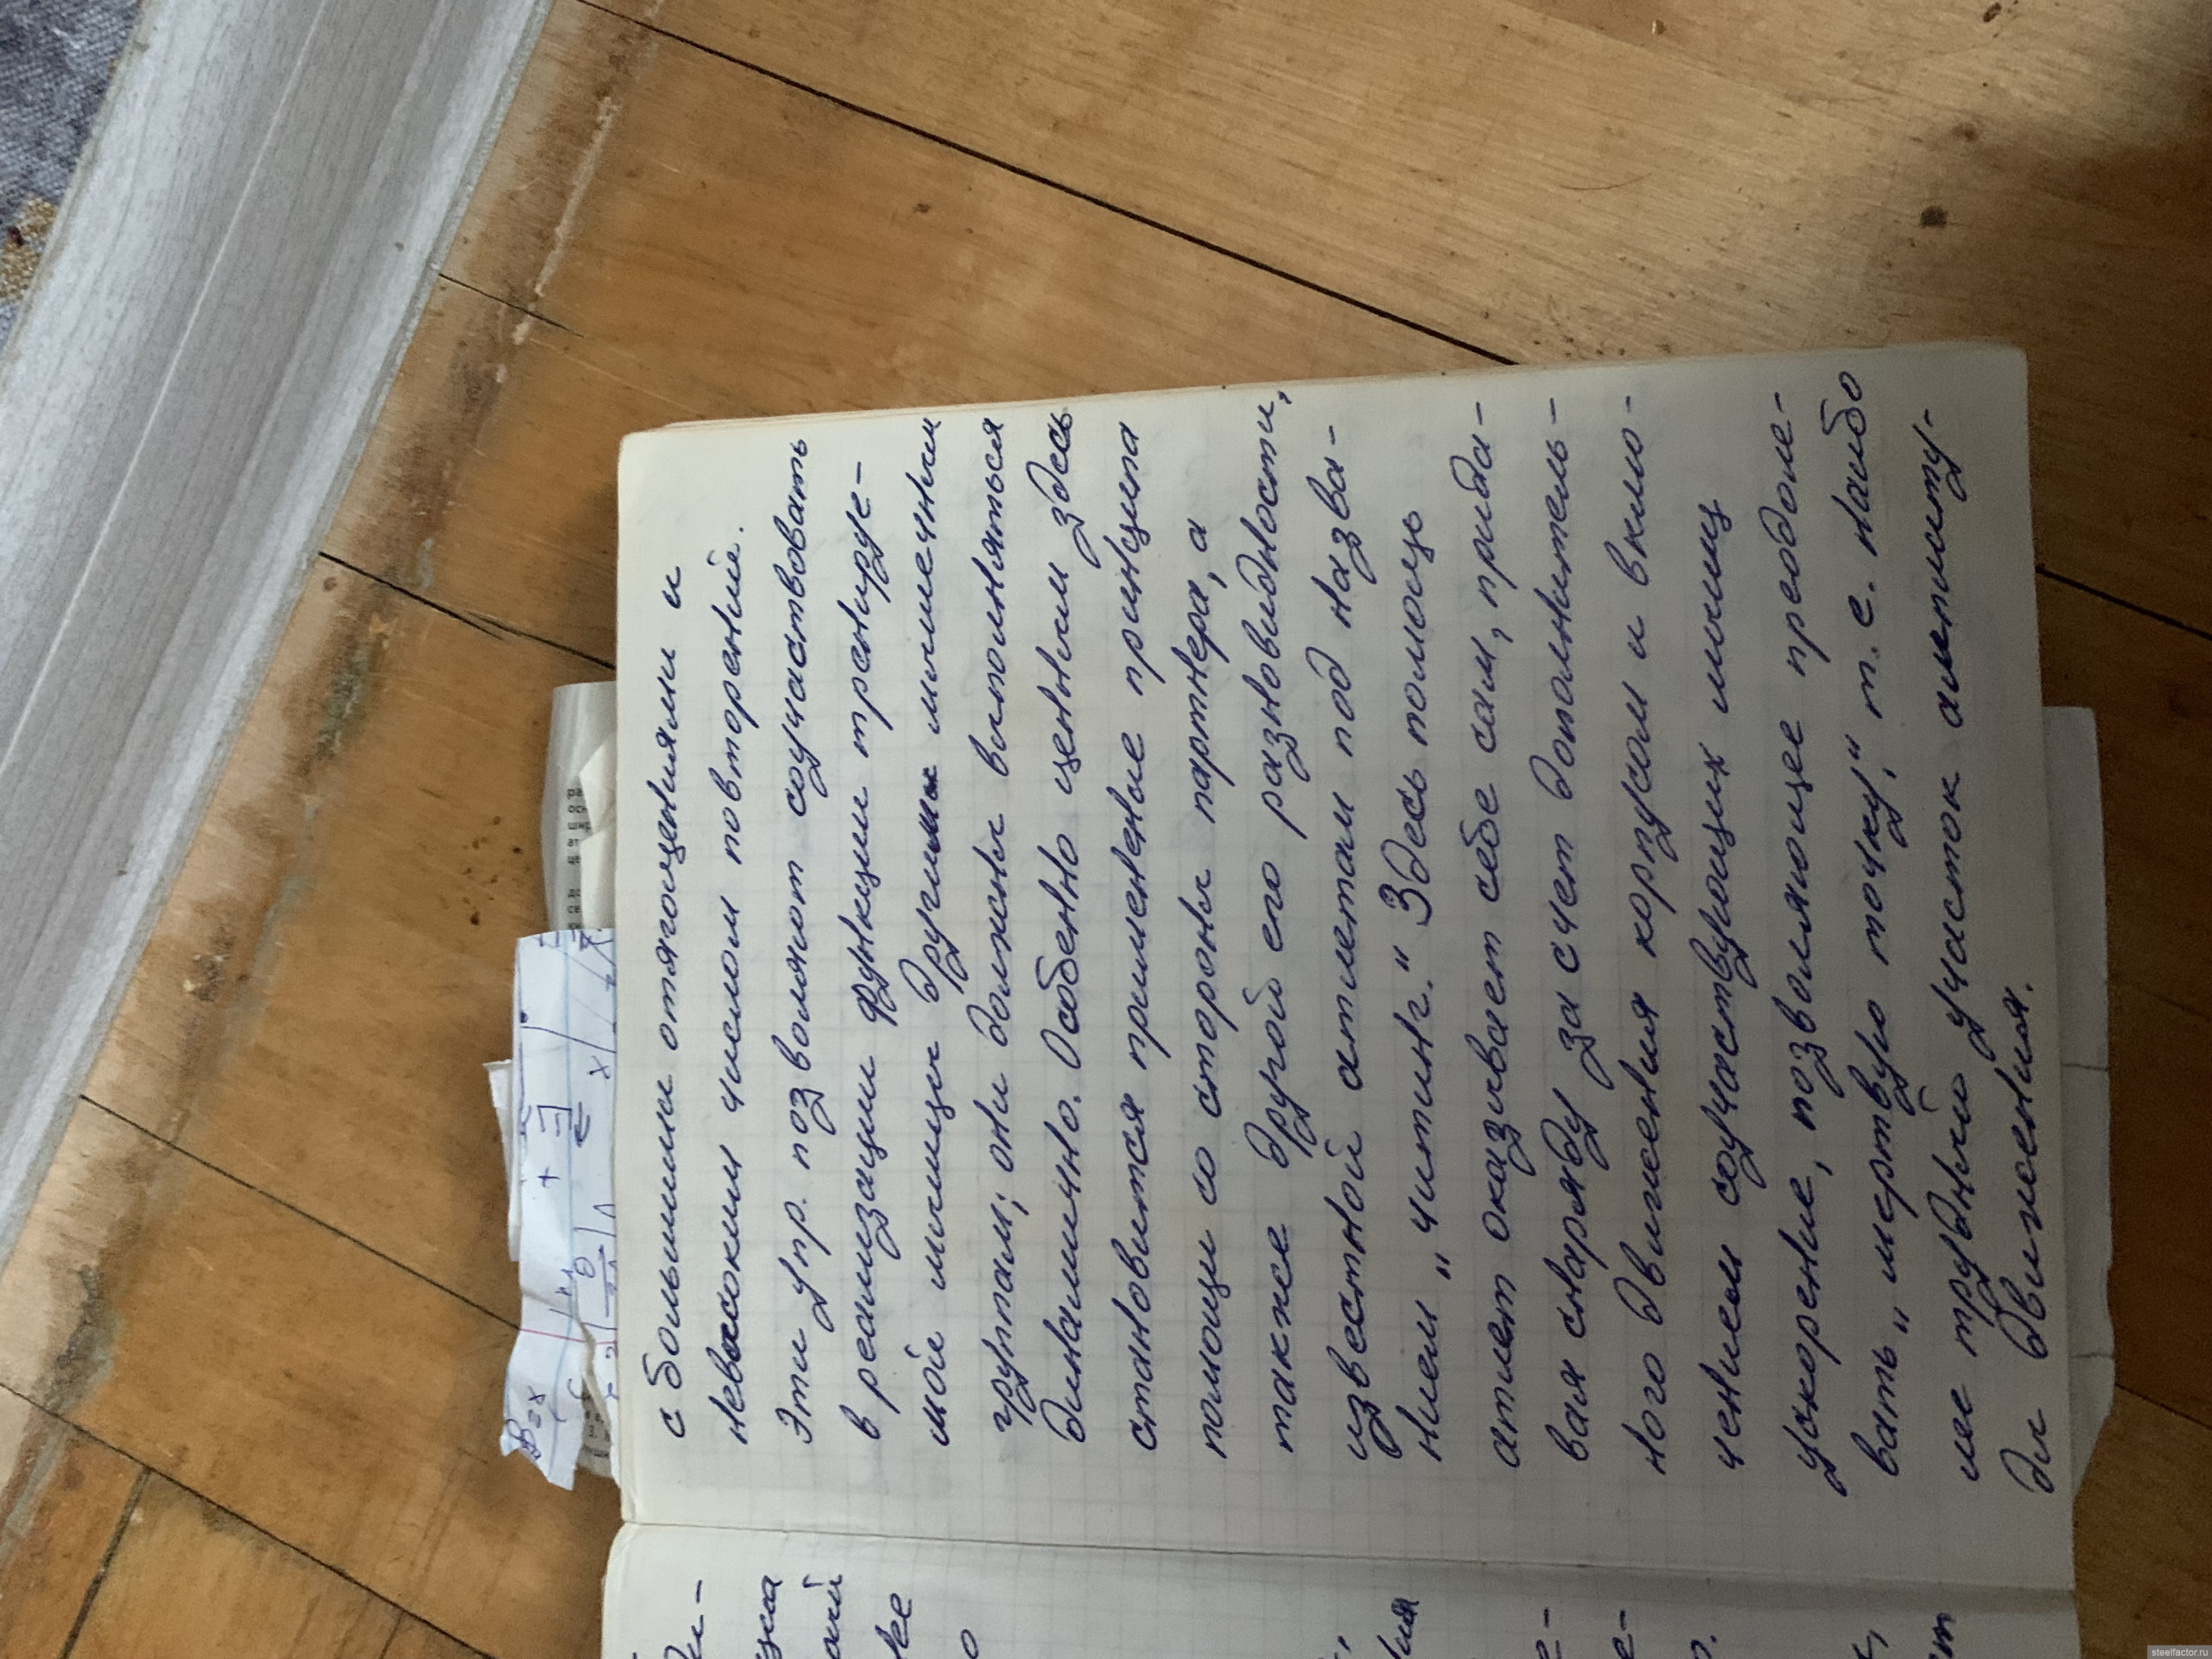 с большими отягощениями и
невысоким числом повторений.
Эти упр. позволяют соучаствовать
в реализации функции тренируе-
мой мышцы другим мышечным
группам; они должны выполняться
динамично. Особенно ценным здесь
становится применение принципа
помощи со стороны партнера, а
также другой его разновидности,
известной атлетам под назва-
нием „читинг." Здесь помощь
атлет оказывает себе сам, прида-
вая снаряду за счет дополнитель-
ного движения корпусом и вклю-
чением соучаствующих мышц
ускорение, позволяющее преодоле-
вать „мертвую точку," т.е. наибо
лее трудный участок амплиту-
ды движения.
steelfactor.ru